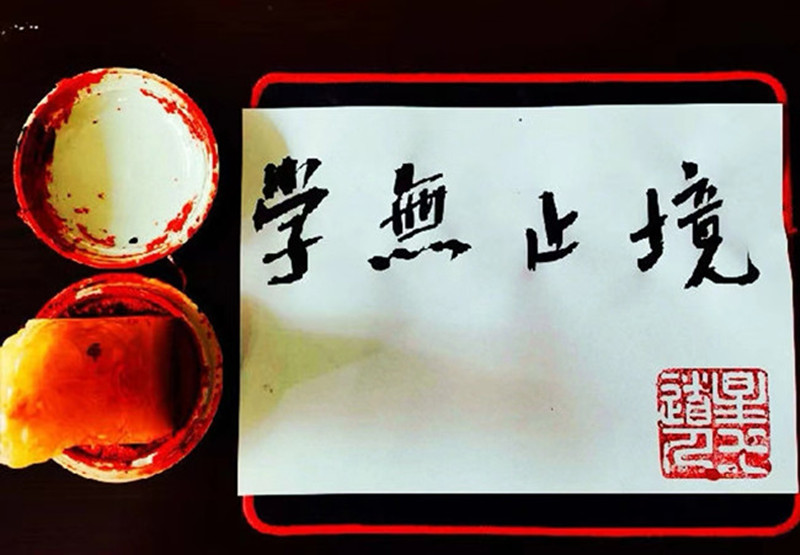 学無止境